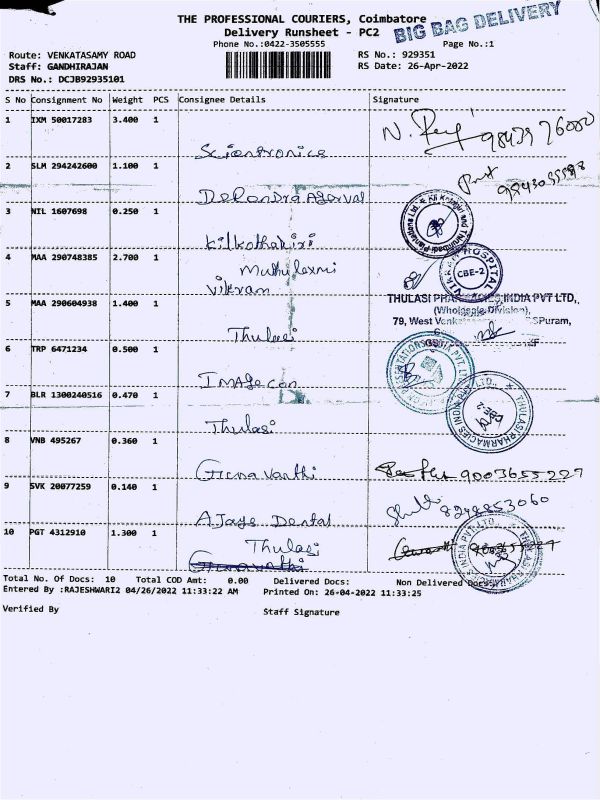 THE PROFESSIONAL COURIERS, Coimbatore
Delivery Runsheet - PC2
BIG BAG DELIVERY
Phone No.:0422-3505555
Page No.:1
Route: VENKATASAMY ROAD
RS No.: 929351
Staff: GANDHIRAJAN
RS Date: 26-Apr-2022
DRS No.: DCJB92935101
S No Consignment No Weight PCS Consignee Details Signature
1 IXM 50017283 3.400 1
Scientronics
2 SLM 294242600 1.100 1
Devendra Agarwal
9843055598
3 NIL 1607698 0.250 1
Kilkothakiri
4 MAA 290748385 2.700 1
Muthulaxmi
Vikram
VIKRAM HOSPITAL
CBE-2
5 MAA 290604938 1.400 1
Thulasi
THULASI PHARMACIES INDIA PVT LTD,
(Wholesale Division),
79, West Puram,
6 TRP 6471234 0.500 1
Imagecon
7 BLR 1300240516 0.470 1
Thulasi
THULASI PHARMACIES INDIA PVT LTD.,
CBE-2
8 VNB 495267 0.360 1
Gunavanthi
9003655227
9 SVK 20077259 0.140 1
Ajaye Dental
8248853060
10 PGT 4312910 1.300 1
Thulasi
Gunavathi
Total No. Of Docs: 10 Total COD Amt: 0.00 Delivered Docs: Non Delivered Docs:
Entered By :RAJESHWARI2 04/26/2022 11:33:22 AM Printed On: 26-04-2022 11:33:25
Verified By Staff Signature